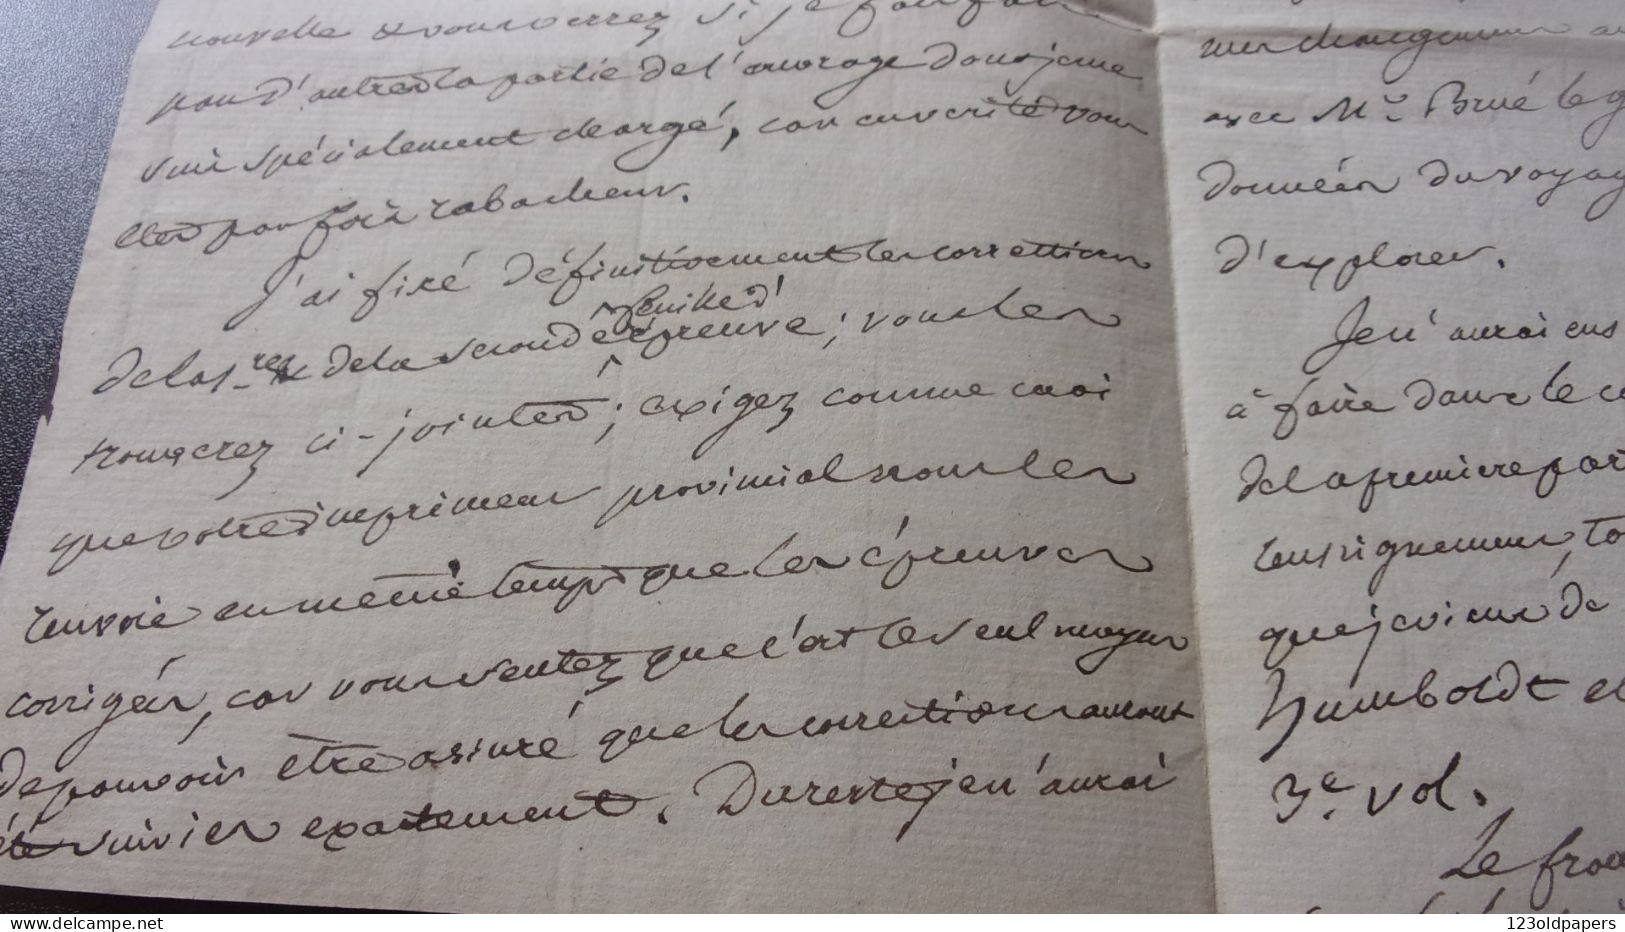 nouvelle & vous verrez si je
pas d'autres la partie de l'ouvrage dont je me
suis spécialement chargé, car en verité vous
êtes par fois rabacheur.
J'ai fixé définitivement les corrections
de la 1re & de la seconde feuille d'épreuve; vous les
trouverez ci-jointes; exigez comme moi
que votre imprimeur provincial vous les
renvoie en même temps que les épreuves
corrigées, car vous sentez que c'est le seul moyen
de pouvoir être assuré que les corrections auront
été suivies exactement. Du reste je n'aurai
mes changemens
avec Mr Brué le g
données du voyag
d'explorer.
Je n'aurai eus
à faire dans le c
de la premiere par
renseignemens, to
que je viens de
Humboldt et
3e vol.
Le froi
123oldpapers